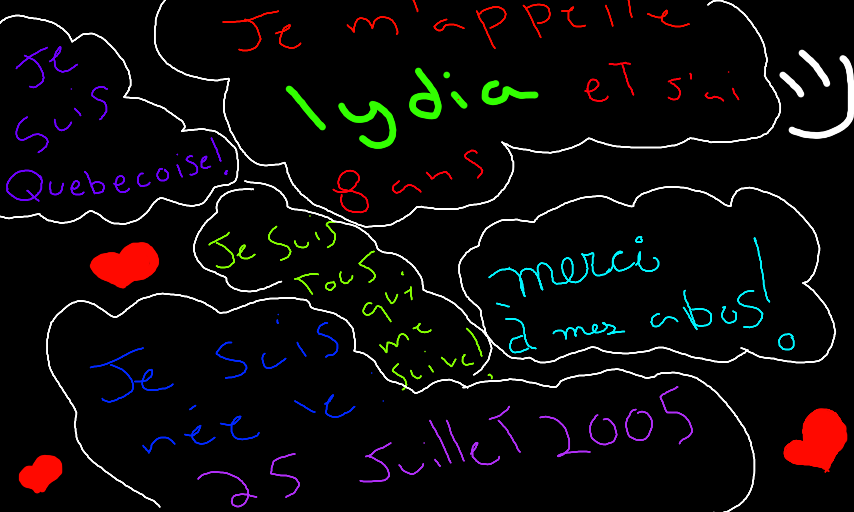 Je m'appelle
lydia et s'ai
8 ans
Je
suis
Quebecoise!
Je suis
tous
qui
me
suive!
merci
à mes abos!
Je suis
née le
25 Juillet 2005